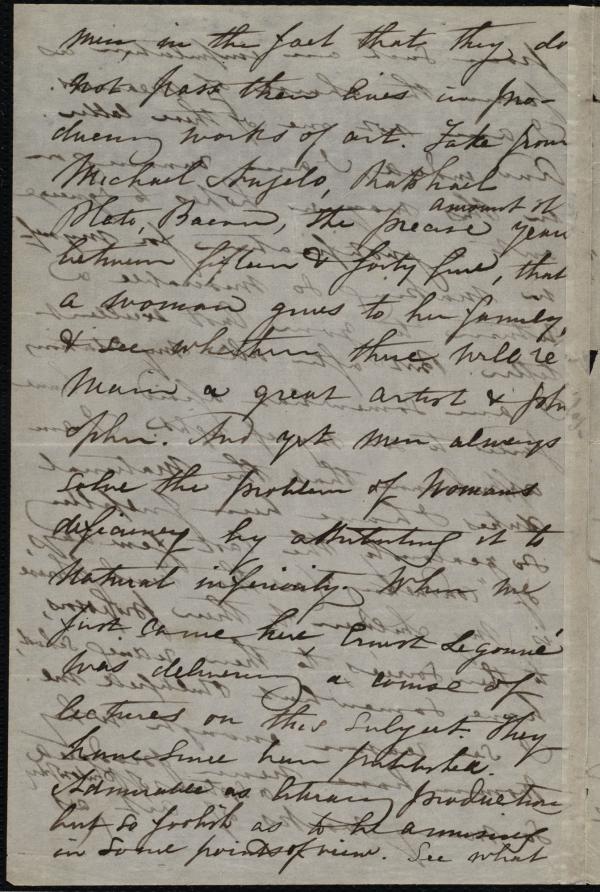 men in the fact that they do
not pass their lives in pro-
ducing works of art. Take from
Michael Angelo, Raphael
Plato, Bacon, the precise amount of years
between fifteen & forty five, that
a woman gives to her family,
& see whether there will re
main a great artist &
. And yet men always
solve the problem of Womans
deficiency by attributing it to
natural inferiority. When we
first came here, Ernest Legouvé
was delivering a course of
lectures on this subject. They
have since been published.
Admirable as literary production
but so foolish as to be amusing
in some points of view. See what